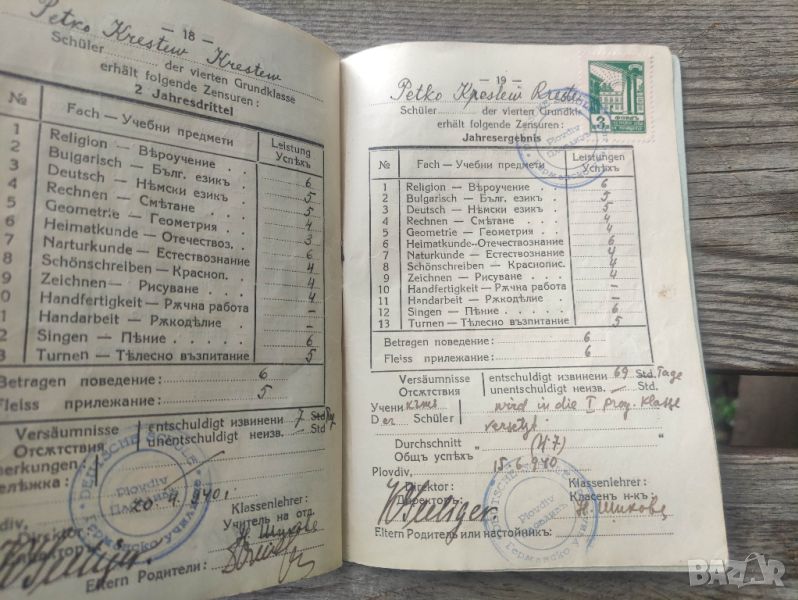 — 18 —
Petko Krestew Krestew
Schüler der vierten Grundklasse
erhält folgende Zensuren:
2 Jahresdrittel
№ Fach — Учебни предмети Leistung Успѣхъ
1 Religion — Вѣроучение 6
2 Bulgarisch — Бълг. езикъ 5
3 Deutsch — Нѣмски езикъ 5
4 Rechnen — Смѣтане 4
5 Geometrie — Геометрия 4
6 Heimatkunde — Отечествоз. 3
7 Narturkunde — Естествознание 6
8 Schönschreiben — Краснoп. 4
9 Zeichnen — Рисуване 4
0 Handfertigkeit — Рѫчна работа 4
1 Handarbeit — Рѫкоделие –
2 Singen — Пѣние 6
3 Turnen — Тѣлесно възпитание 5
Betragen поведение: 6
Fleiss прилежание: 5
Versäumnisse entschuldigt извинени 7 Std
Отсѫтствия unentschuldigt неизв. — Std
merkungen
ележка:
DEUTSCHE SCHULE
Plovdiv
20.4.940
Klassenlehrer:
Учитель на отд.
Н. Шикова
Direktor
Директоръ
Eltern Родители:
— 19 —
Petko Krestew
Schüler der vierten Grundkl
erhält folgende Zensuren:
Jahresergebnis
3
Plovdiv
№ Fach — Учебни предмети Leistungen Успѣхъ
1 Religion — Вѣроучение 6
2 Bulgarisch — Бълг. езикъ 5
3 Deutsch — Нѣмски езикъ 5
4 Rechnen — Смѣтане 4
5 Geometrie — Геометрия 4
6 Heimatkunde—Отечествознание 6
7 Naturkunde — Естествознание 4
8 Schönschreiben — Краснопис. 4
9 Zeichnen — Рисуване 4
10 Handfertigkeit — Рѫчна работа –
11 Handarbeit — Рѫкоделие –
12 Singen — Пѣние 6
13 Turnen — Тѣлесно възпитание 5
Betragen поведение: 6
Fleiss прилежание: 6
Versäumnisse entschuldigt извинени 69 Std. Tage
Отсѫтствия unentschuldigt неизв. — Std.
Учени
Der Schüler wird in die I prog. Klasse
versetzt.
Durchschnitt (4.7)
Общъ успѣхъ
Plovdiv, 15.6.940
Direktor: Klassenlehrer:
Директоръ: Класенъ н-къ:
Н. Шикова
DEUTSCHE
Plovdiv
Eltern Родитель или настойникъ:
BAZAR